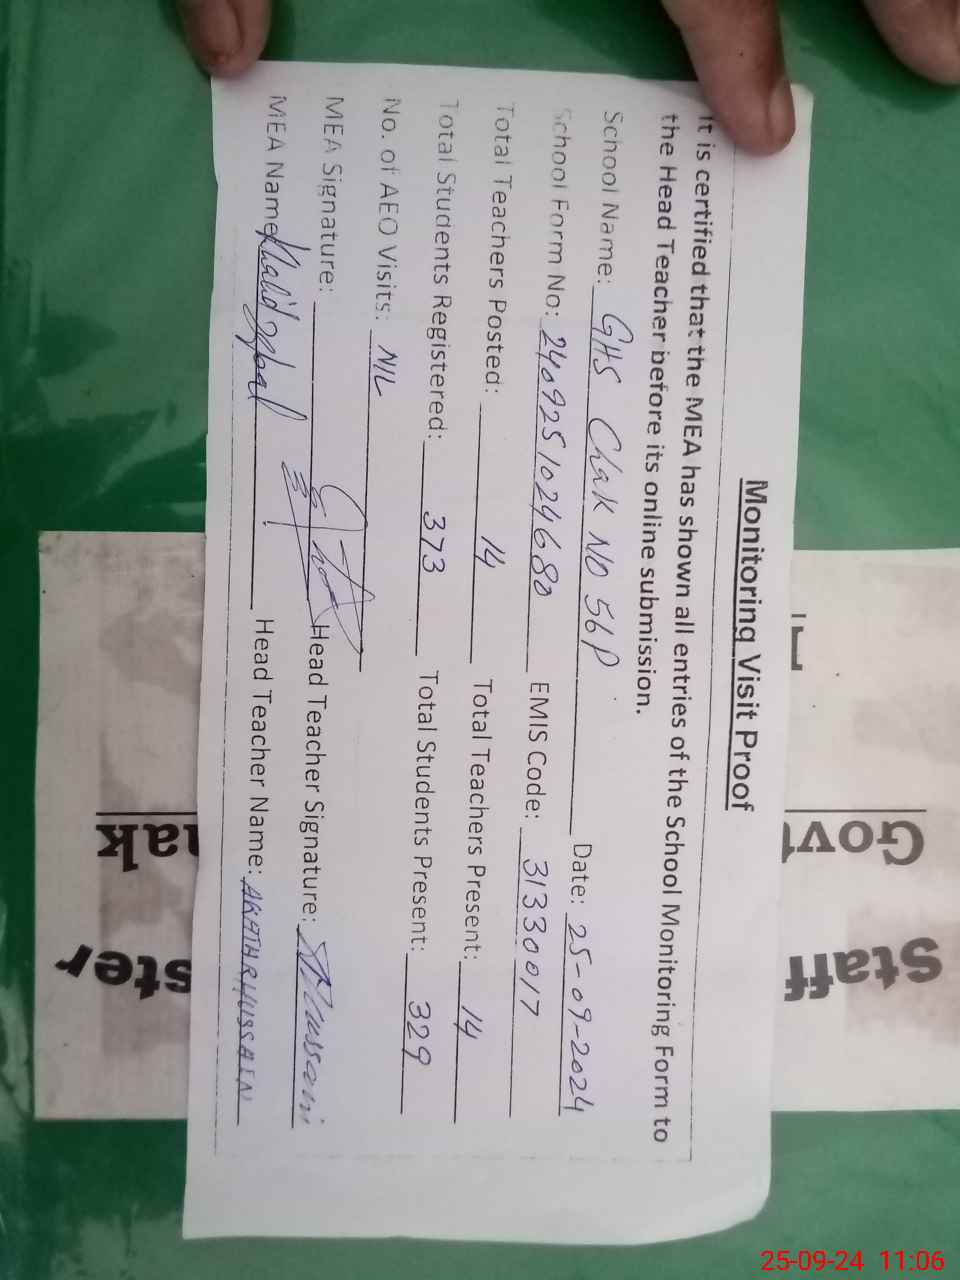 Monitoring Visit Proof
It is certified that the MEA has shown all entries of the School Monitoring Form to
the Head Teacher before its online submission.
School Name: GHS Chak NO 56P Date: 25-09-2024
School Form No: 2409251024680 EMIS Code: 31330017
Total Teachers Posted: 14 Total Teachers Present: 14
Total Students Registered: 373 Total Students Present: 329
No. of AEO Visits: NIL
MEA Signature: Head Teacher Signature:
MEA Name: Khalid Iqbal Head Teacher Name:
Staff
Govt
ster
hak
25-09-24 11:06